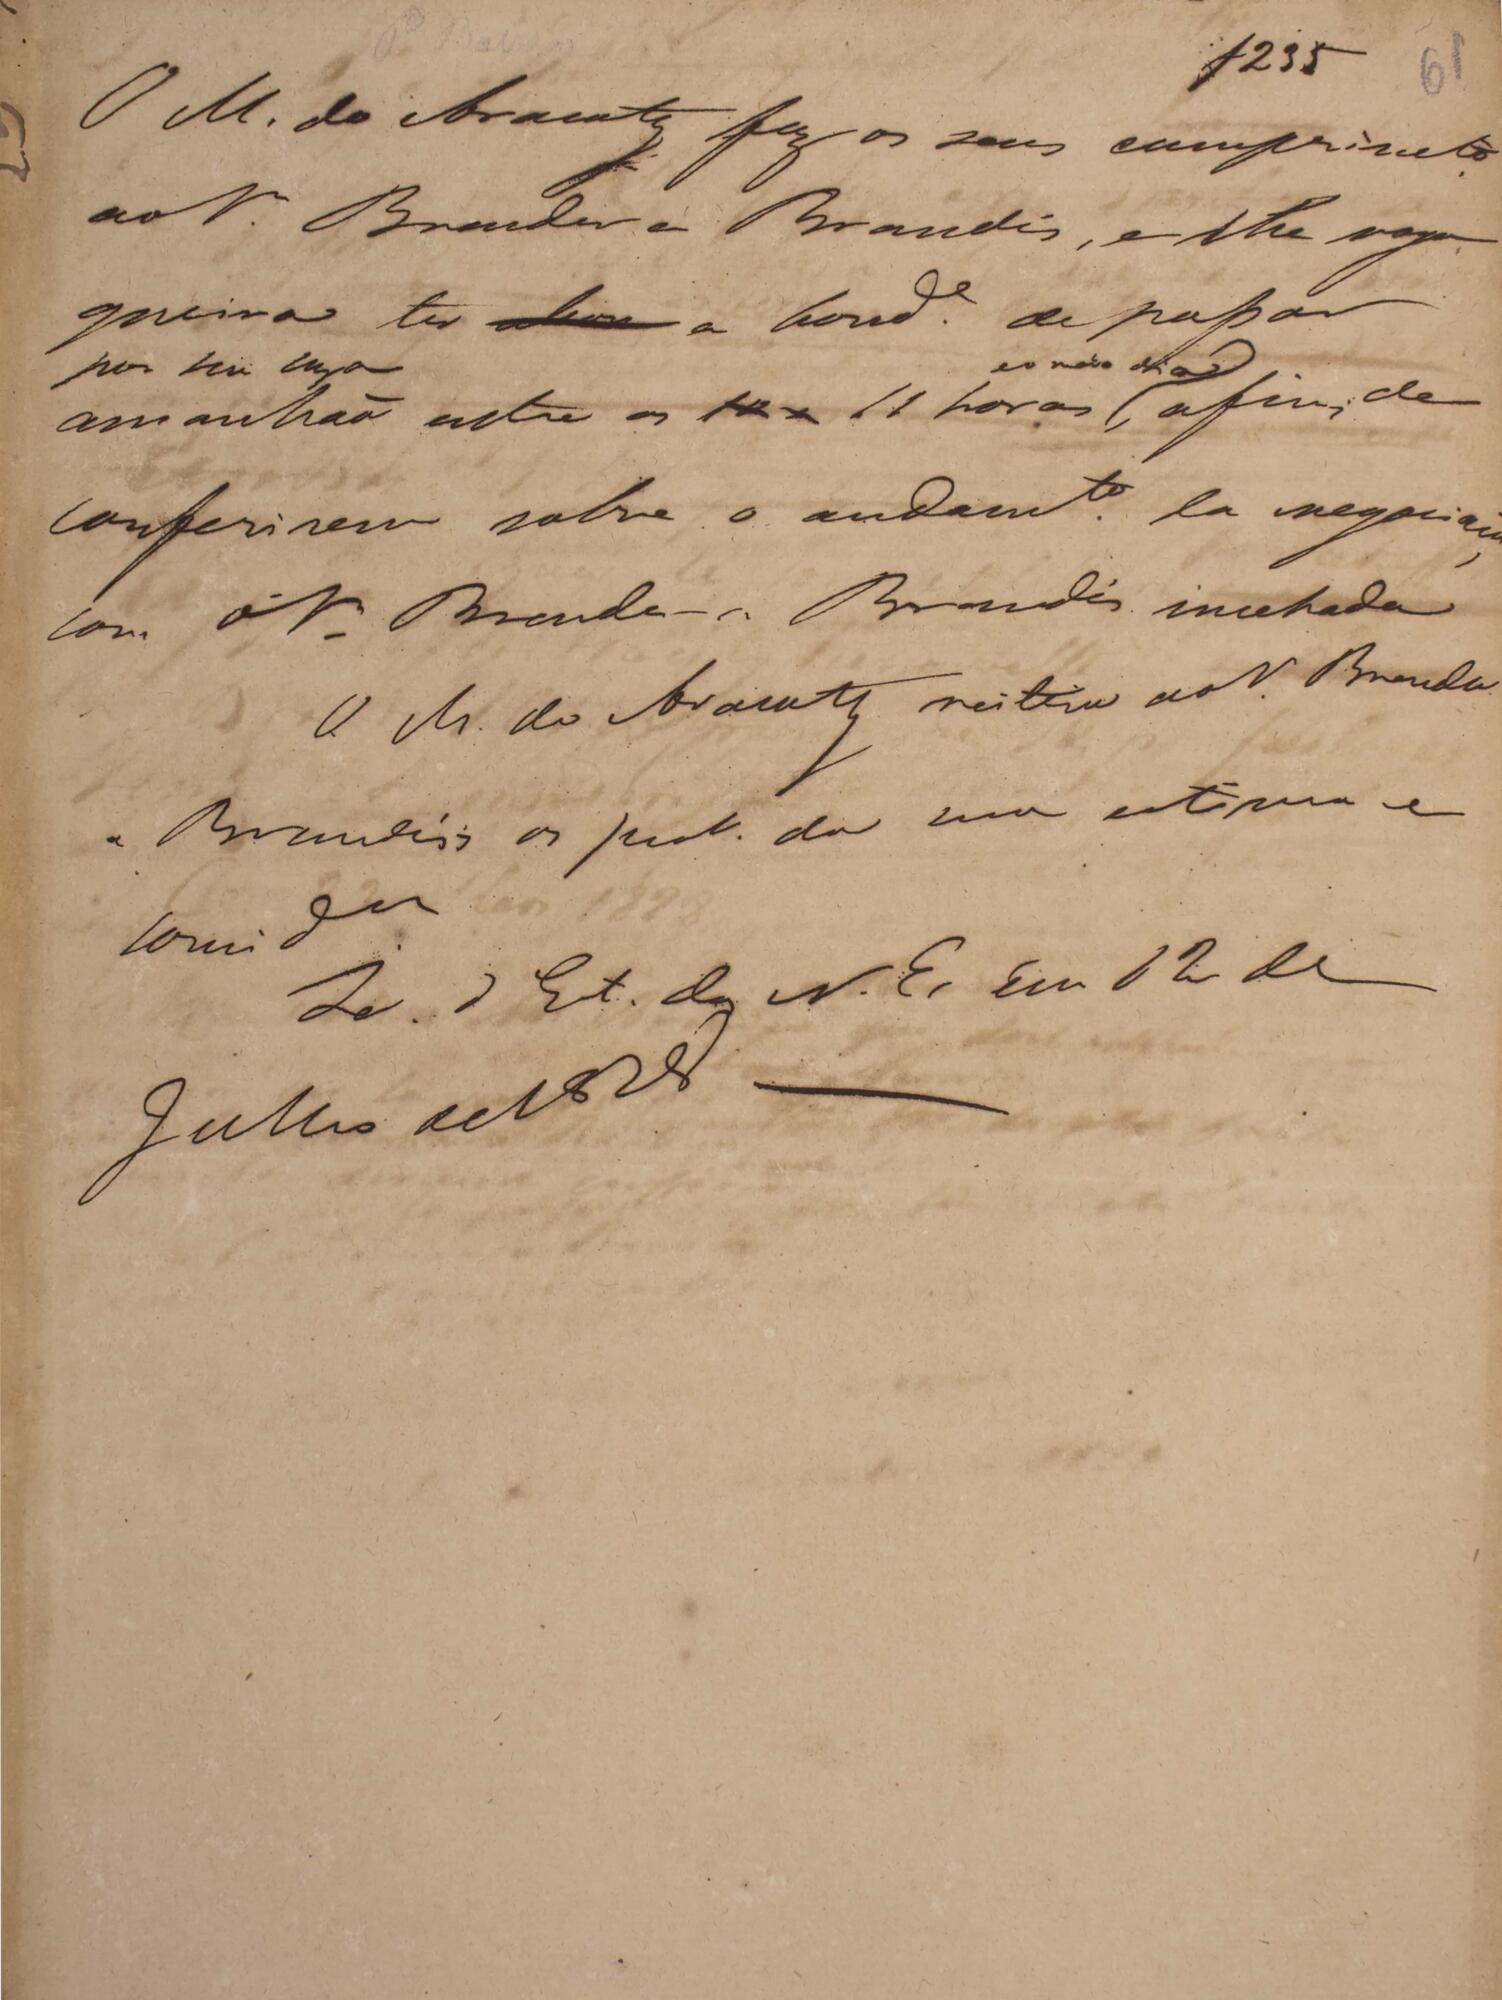 1235
61
O M. do Aracaty faz os seus cumprimetos
ao Sr. Brender a Brandis, e lhe roga
queira ter a bond.e de passar
por sua caza
amanhaã entre as 11 horas, afim de
e o meio dia
conferirem sobre o andamto. da negociação,
com o Sr. Brender a Brandis incetada
O M. do Aracaty reitera ao Sr. Brender
a Brandis os prot. da sua estima e
consideram
Se. d'Est. dos N. E. em 12 de
Julho de 1828